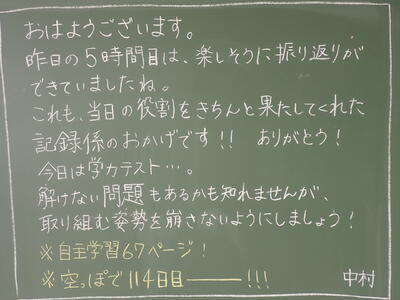 おはようございます。
昨日の5時間目は、楽しそうに振り返りが
できていましたね。
これも、当日の役割をきちんと果たしてくれた
記録係のおかげです!! ありがとう!
今日は学力テスト…。
解けない問題もあるかも知れませんが、
取り組む姿勢を崩さないようにしましょう!
※自主学習67ページ!
※空っぽで114日目―――!!!
中村